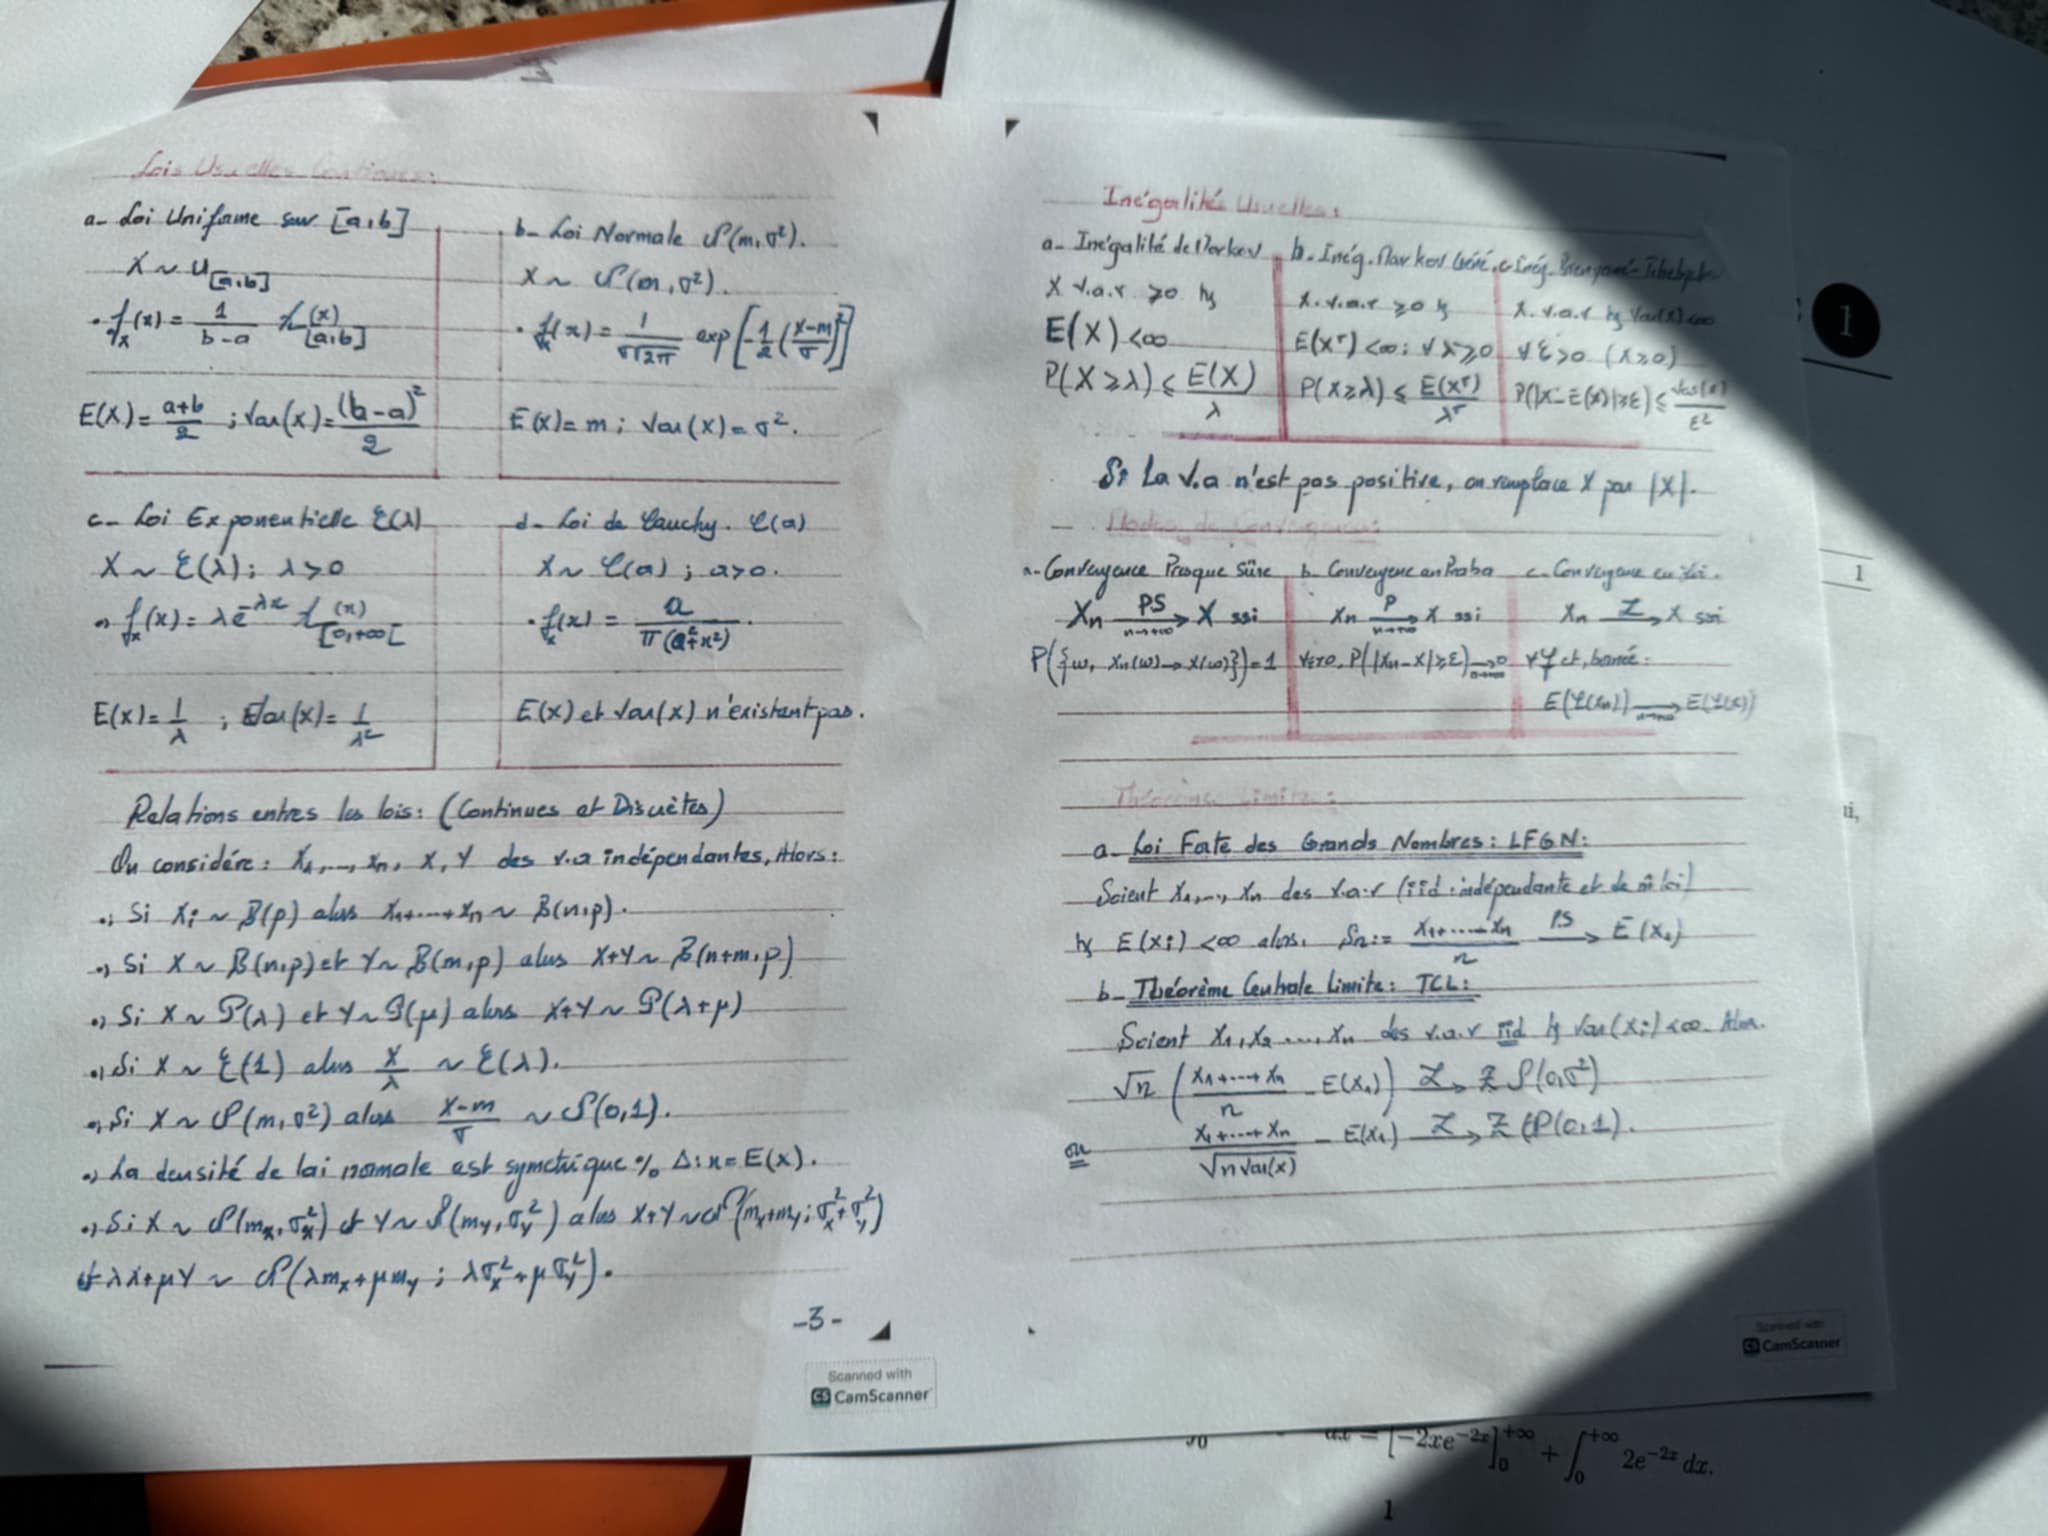 Lois Usuelles Continues:
a- Loi Uniforme sur [a,b]
X ~ U[a,b]
• fx(x) = 1/(b-a) 𝟙[a,b](x)
E(X) = (a+b)/2 ; Var(X) = (b-a)²/2
b- Loi Normale 𝒩(m,σ²).
X ~ 𝒩(m,σ²).
• fx(x) = 1/(σ√2π) exp[-1/2 ((x-m)/σ)²]
E(X) = m ; Var(X) = σ².
c- Loi Exponentielle ℰ(λ)
X ~ ℰ(λ); λ>0
fx(x) = λe^-λx 𝟙[0,+∞[(x)
E(X) = 1/λ ; Var(X) = 1/λ²
d- Loi de Cauchy. 𝒞(a)
X ~ 𝒞(a) ; a>0.
• fx(x) = a/(π(a²+x²)).
E(X) et Var(X) n'existent pas.
Relations entres les lois: (Continues et Discrètes)
On considére: X1,...,Xn, X, Y des v.a indépendantes, Alors:
•) Si Xi ~ B(p) alors X1+...+Xn ~ B(n,p).
•) Si X ~ B(n,p) et Y ~ B(m,p) alors X+Y ~ B(n+m,p)
•) Si X ~ P(λ) et Y ~ P(μ) alors X+Y ~ P(λ+μ)
•) Si X ~ ℰ(1) alors X/λ ~ ℰ(λ).
•) Si X ~ 𝒩(m,σ²) alors (X-m)/σ ~ 𝒩(0,1).
•) La densité de loi normale est symetrique % Δ: x = E(X).
•) Si X ~ 𝒩(mx,σx²) et Y ~ 𝒩(my,σy²) alors X+Y ~ 𝒩(mx+my; σx²+σy²)
et λX+μY ~ 𝒩(λmx+μmy ; λσx²+μσy²).
-3-
Scanned with
CS CamScanner
Inégalités Usuelles:
a- Inégalité de Markov
X v.a.r ≥0 tq
E(X) <∞
P(X ≥ λ) ≤ E(X)/λ
b. Inég. Markov Géné.
X. v.a.r ≥0 tq
E(X^r) <∞; ∀ λ≥0
P(X≥λ) ≤ E(X^r)/λ^r
c. Inég. Bienyamé-Tchebychev
X. v.a.r tq Var(X) <∞
∀ε>0 (X≥0)
P(|X-E(X)|≥ε) ≤ Var(X)/ε²
Si La v.a n'est pas positive, on remplace X par |X|.
Modes de Convergences:
a- Convergence Presque Sûre
Xn PS→ n→+∞ X ssi
P({ω, Xn(ω)→X(ω)})=1
b- Convergence en Proba
Xn P→ n→+∞ X ssi
∀ε>0, P(|Xn-X|≥ε) → n→+∞ 0
c- Convergence en Loi.
Xn ℒ→ X ssi
∀φ ct, bornée:
E(φ(Xn)) → n→+∞ E(φ(X))
Théorèmes Limite:
a- Loi Forte des Grands Nombres: LFGN:
Soient X1,..., Xn des v.a.r (iid: indépendante et de m̂ loi)
tq E(Xi) <∞ alors, Sn:= (X1+...+Xn)/n PS→ E(X1)
b- Théorème Centrale Limite: TCL:
Soient X1, X2 ..., Xn des v.a.r iid tq Var(Xi) <∞. Alors.
√n ((X1+...+Xn)/n - E(X1)) ℒ→ Z 𝒩(0,σ²)
ou (X1+...+Xn)/√(n Var(X)) - E(X1) ℒ→ Z 𝒩(0,1).
Scanned with
CS CamScanner
1
1
dx = [-2xe^-2x]0^+∞ + ∫0^+∞ 2e^-2x dx.
1